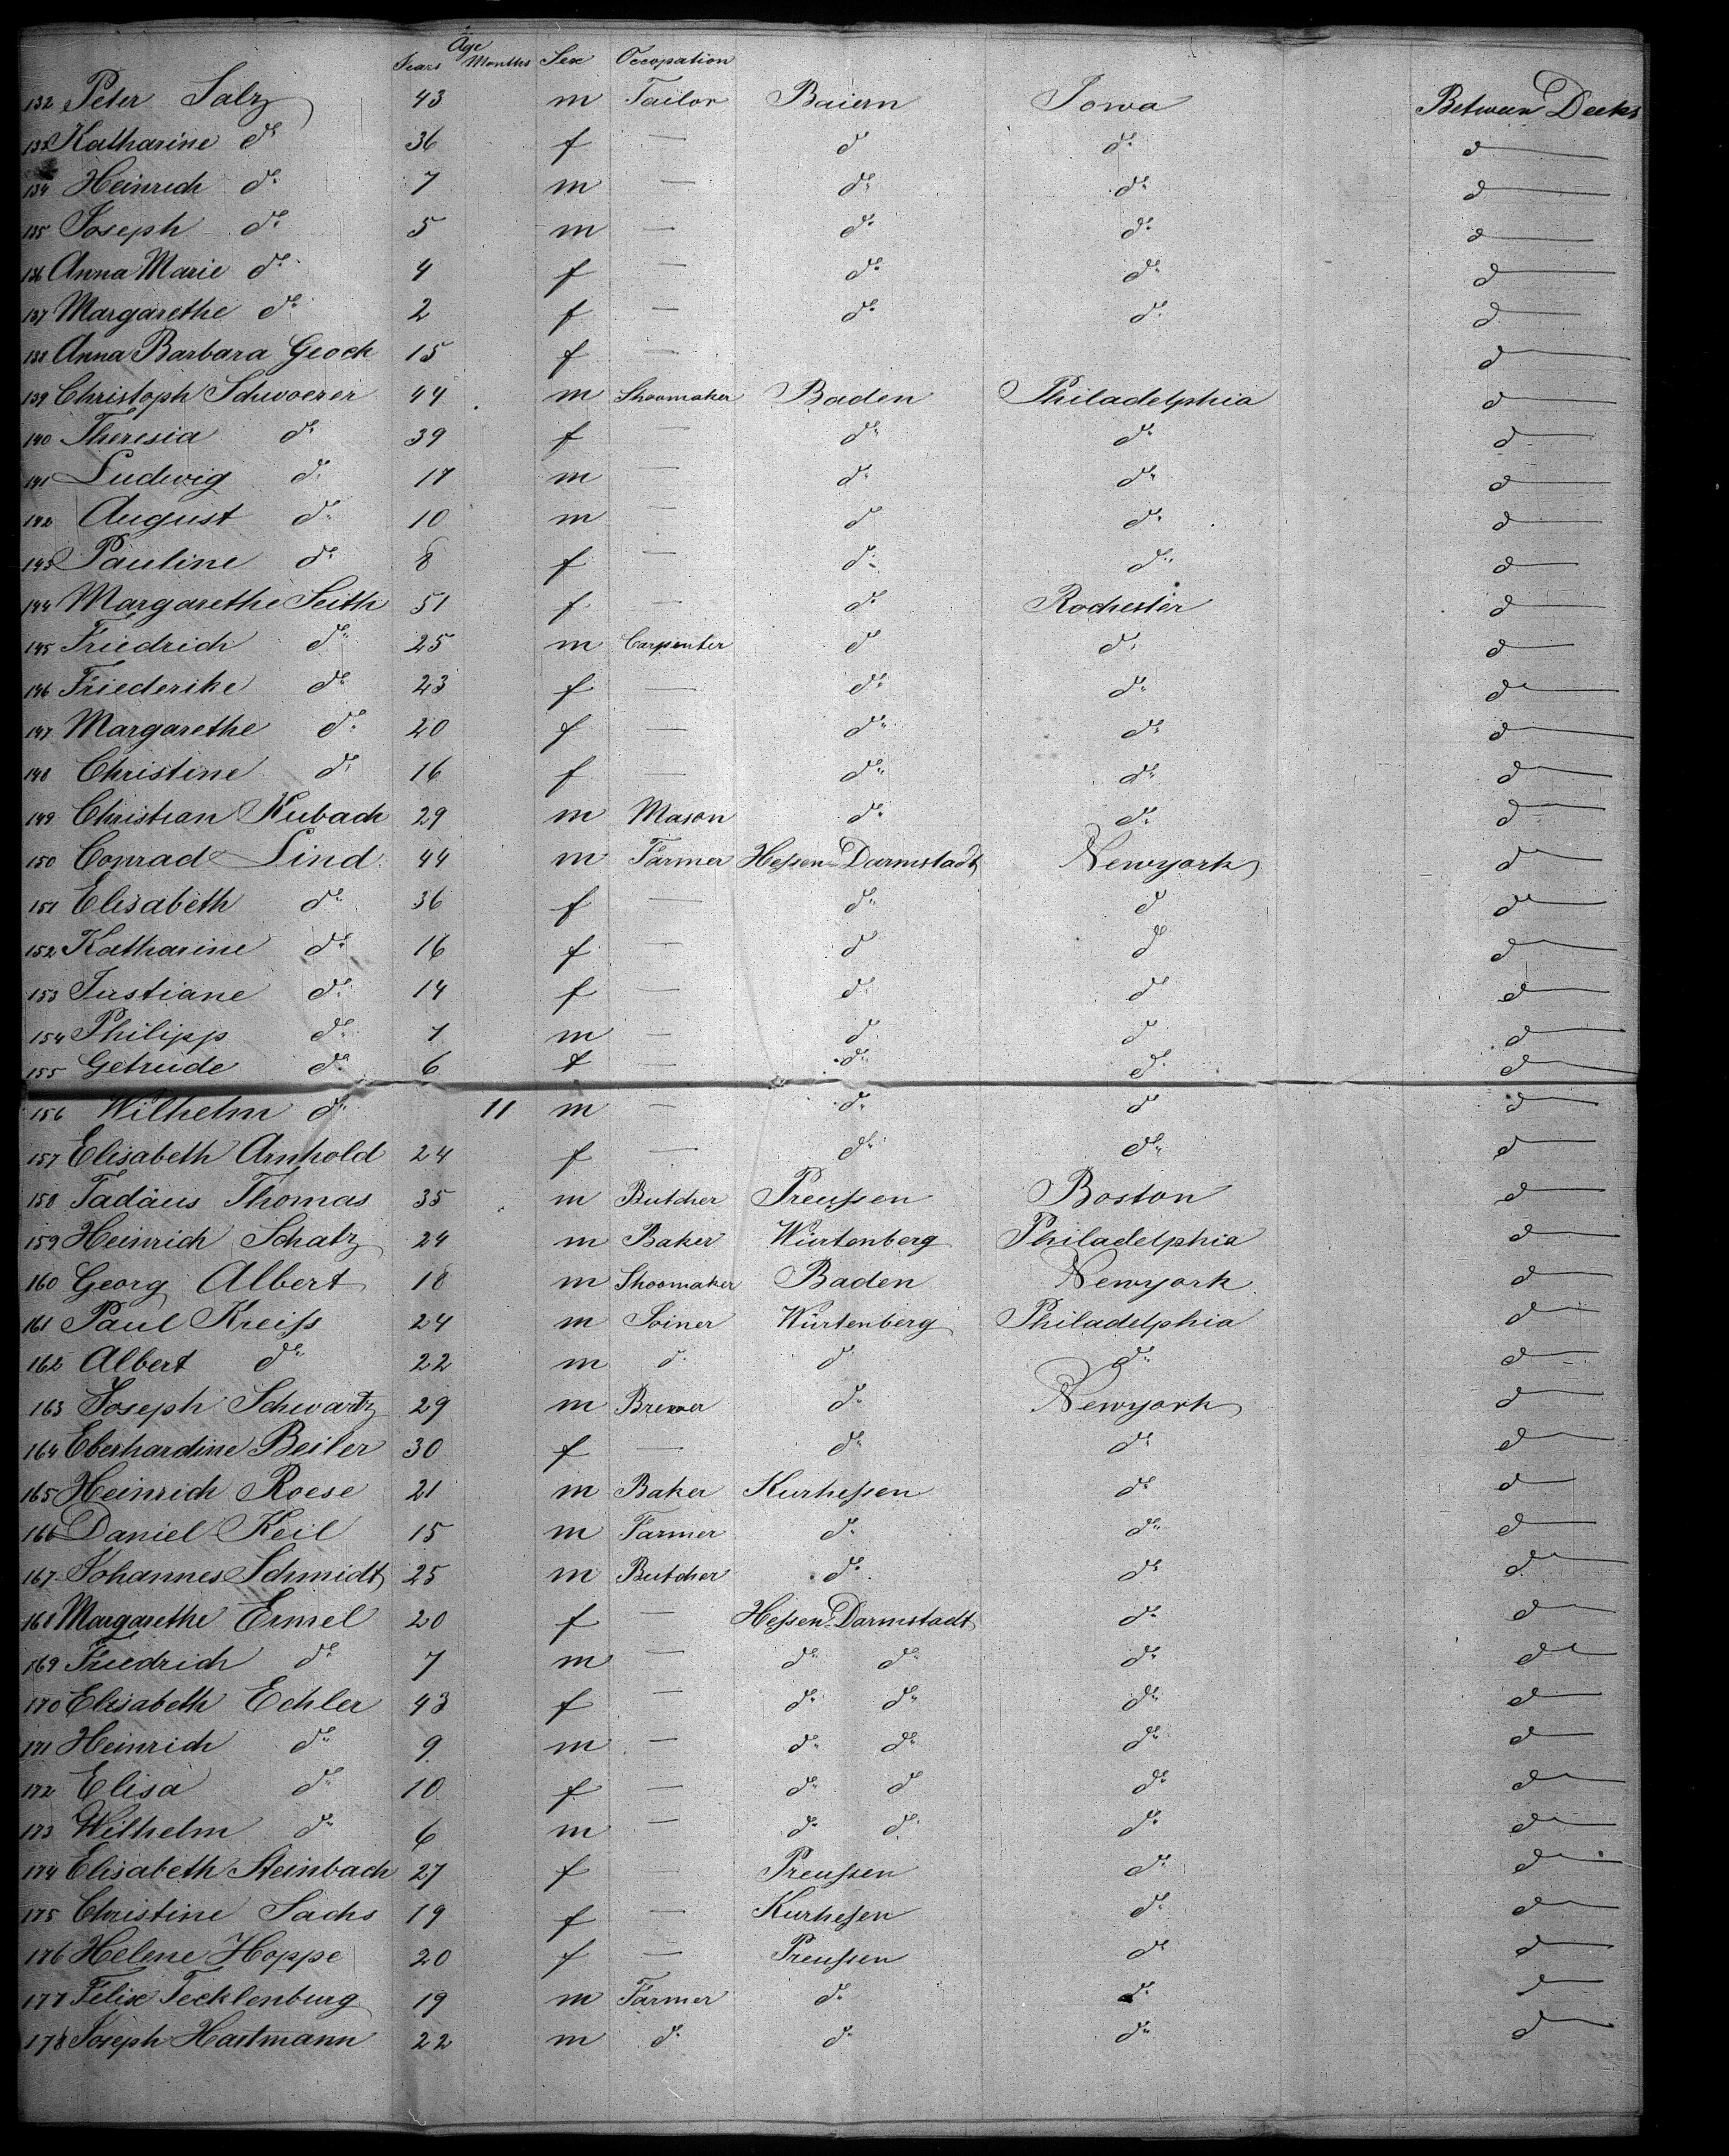 Age
Years Months Sex Occopation
132 Peter Salz 43 m Tailor Baiern Iowa Between Decks
133 Katharine do 36 f — do do do —
134 Heinrich do 7 m — do do do —
135 Joseph do 5 m — do do do —
136 Anna Marie do 4 f — do do do —
137 Margarethe do 2 f — do do do —
138 Anna Barbara Geock 15 f — do —
139 Christoph Schwoerer 44 m Shoomaker Baden Philadelphia do —
140 Theresia do 39 f — do do do —
141 Ludwig do 17 m — do do do —
142 August do 10 m — do do do —
143 Pauline do 8 f — do do do —
144 Margarethe Seith 51 f — do Rochester do —
145 Friedrich do 25 m Carpenter do do do —
146 Friederike do 23 f — do do do —
147 Margarethe do 20 f — do do do —
148 Christine do 16 f — do do do —
149 Christian Kubach 29 m Mason do do do —
150 Conrad Lind 44 m Farmer Hessen-Darmstadt Newyork do —
151 Elisabeth do 36 f — do do do —
152 Katharine do 16 f — do do do —
153 Justiane do 14 f — do do do —
154 Philipp do 7 m — do do do —
155 Getrude do 6 f — do do do —
156 Wilhelm do 11 m — do do do —
157 Elisabeth Arnhold 24 f — do do do —
158 Tadäus Thomas 35 m Butcher Preussen Boston do —
159 Heinrich Schatz 24 m Baker Würtenberg Philadelphia do —
160 Georg Albert 18 m Shoomaker Baden Newyork do —
161 Paul Kreiss 24 m Joiner Würtenberg Philadelphia do —
162 Albert do 22 m do do do do —
163 Joseph Schwartz 29 m Brewer do Newyork do —
164 Eberhardine Beiler 30 f — do do do —
165 Heinrich Roese 21 m Baker Kurhessen do do —
166 Daniel Keil 15 m Farmer do do do —
167 Johannes Schmidt 25 m Butcher do do do —
168 Margarethe Ermel 20 f — Hessen-Darmstadt do do —
169 Friedrich do 7 m — do do do do —
170 Elisabeth Echler 43 f — do do do do —
171 Heinrich do 9 m — do do do do —
172 Elisa do 10 f — do do do do —
173 Wilhelm do 6 m — do do do do —
174 Elisabeth Steinbach 27 f — Preussen do do —
175 Christine Sachs 19 f — Kurhessen do do —
176 Helene Hoppe 20 f — Preussen do do —
177 Felix Tecklenburg 19 m Farmer do do do —
178 Joseph Hartmann 22 m do do do do —